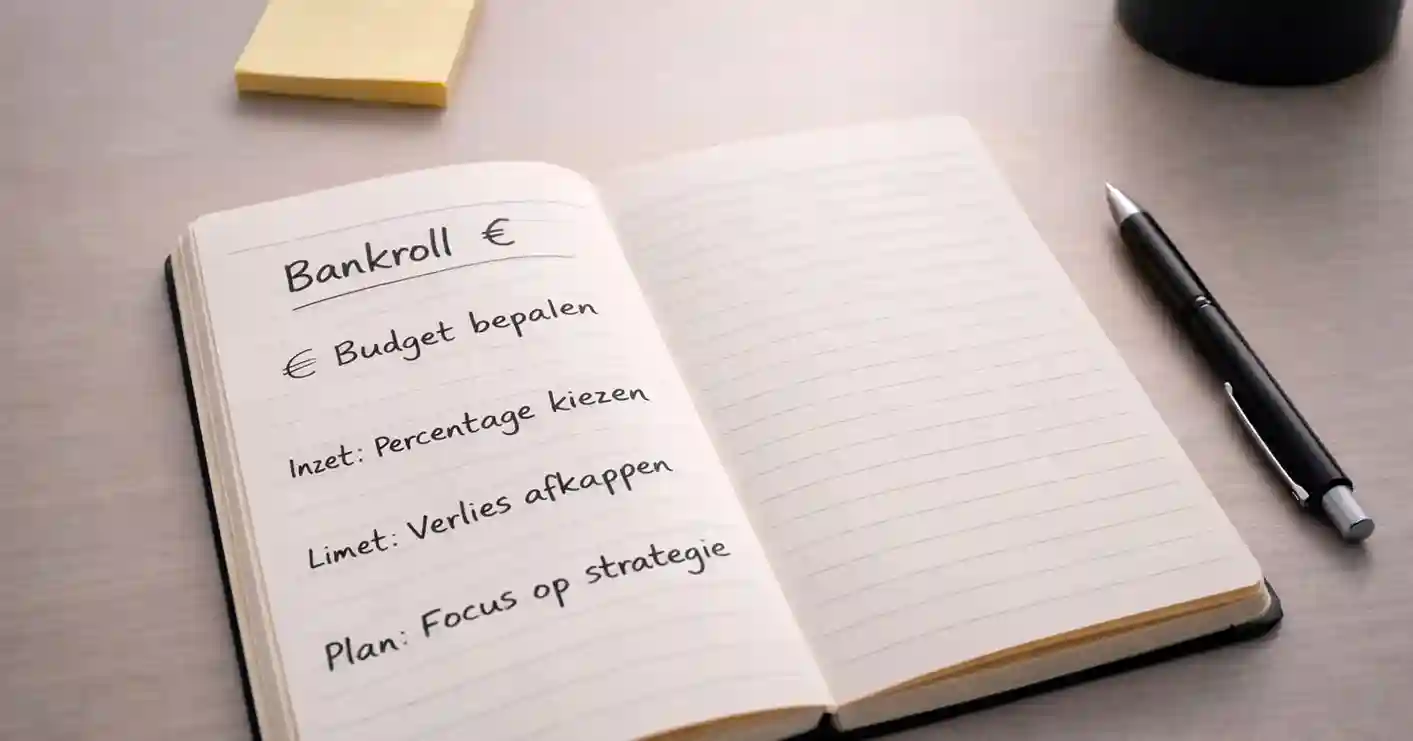 Bankroll €
€ Budget bepalen
Inzet: Percentage kiezen
Limet: Verlies afkappen
Plan: Focus op strategie